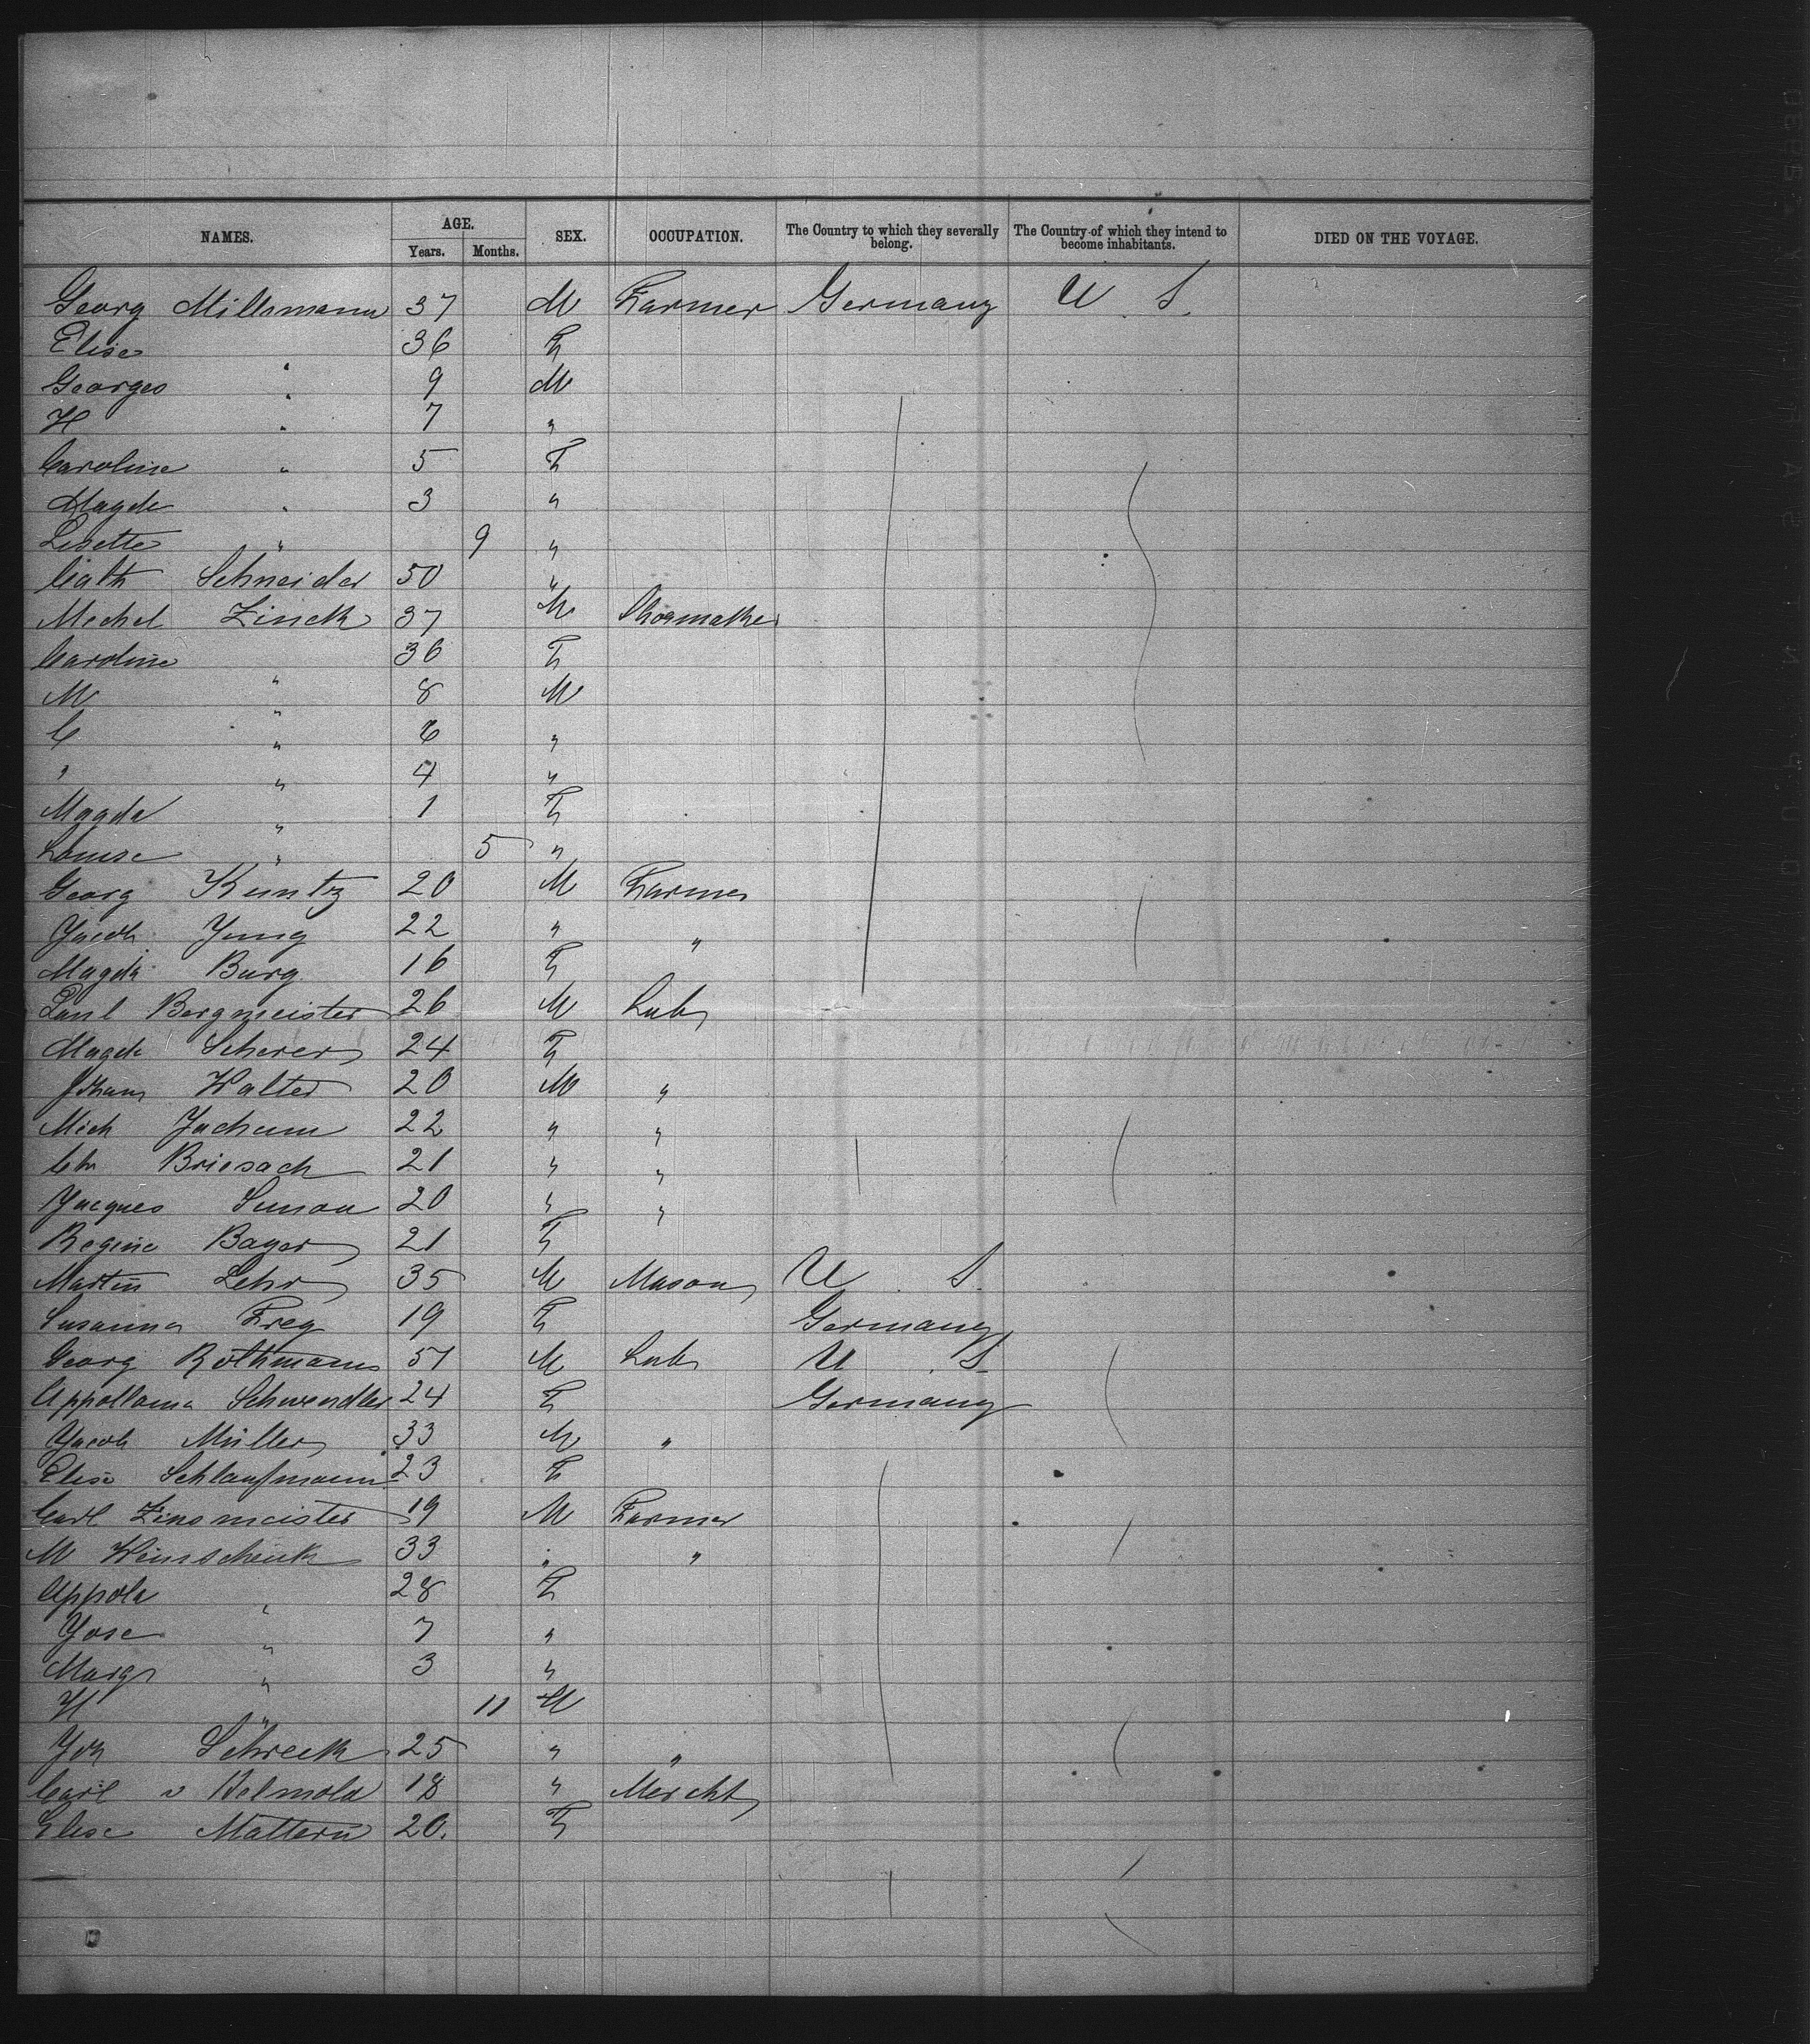 NAMES. AGE. Years. Months. SEX. OCCUPATION. The Country to which they severally belong. The Country of which they intend to become inhabitants. DIED ON THE VOYAGE.
Georg Millemann 37 M Farmer Germany U S.
Elise 36 F
Georges " 9 M
H " 7 "
Caroline " 5 F
Magda " 3 "
Lisette " 9 "
Cath Schneider 50 "
Michel Zinck 37 M Shoemaker
Caroline 36 F
M " 8 M
C " 6 "
" " 4 "
Magda " 1 F
Louise " 5 "
Georg Kuntz 20 M Farmer
Jacob Jung 22 " "
Magda Burg 16 F
Paul Bergmeister 26 M Lab
Magda Scherer 24 F
Johann Walter 20 M "
Mich Jachum 22 " "
Chr Briesach 21 " "
Jacques Simon 20 " "
Regine Bayer 21 F
Martin Lehr 35 M Mason U S.
Susanna Frey 19 F Germany
Georg Rothmann 51 M Lab U S
Appollonia Schwendler 24 F Germany
Jacob Müller 33 M "
Elise Schlaufmann 23 F
Carl Zinsmeister 19 M Farmer
M Weinschenk 33 " "
Appola " 28 F
Jose " 7 "
Marg " 3 "
H " 11 M
Joh Schreck 25 " "
Carl v Helmold 18 " Mercht
Elise Mattern 20. F